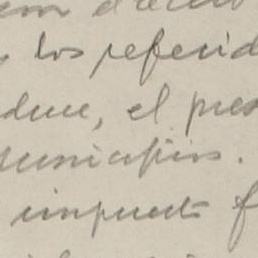 los referid
duce, el pres
municipios.
impuesto f